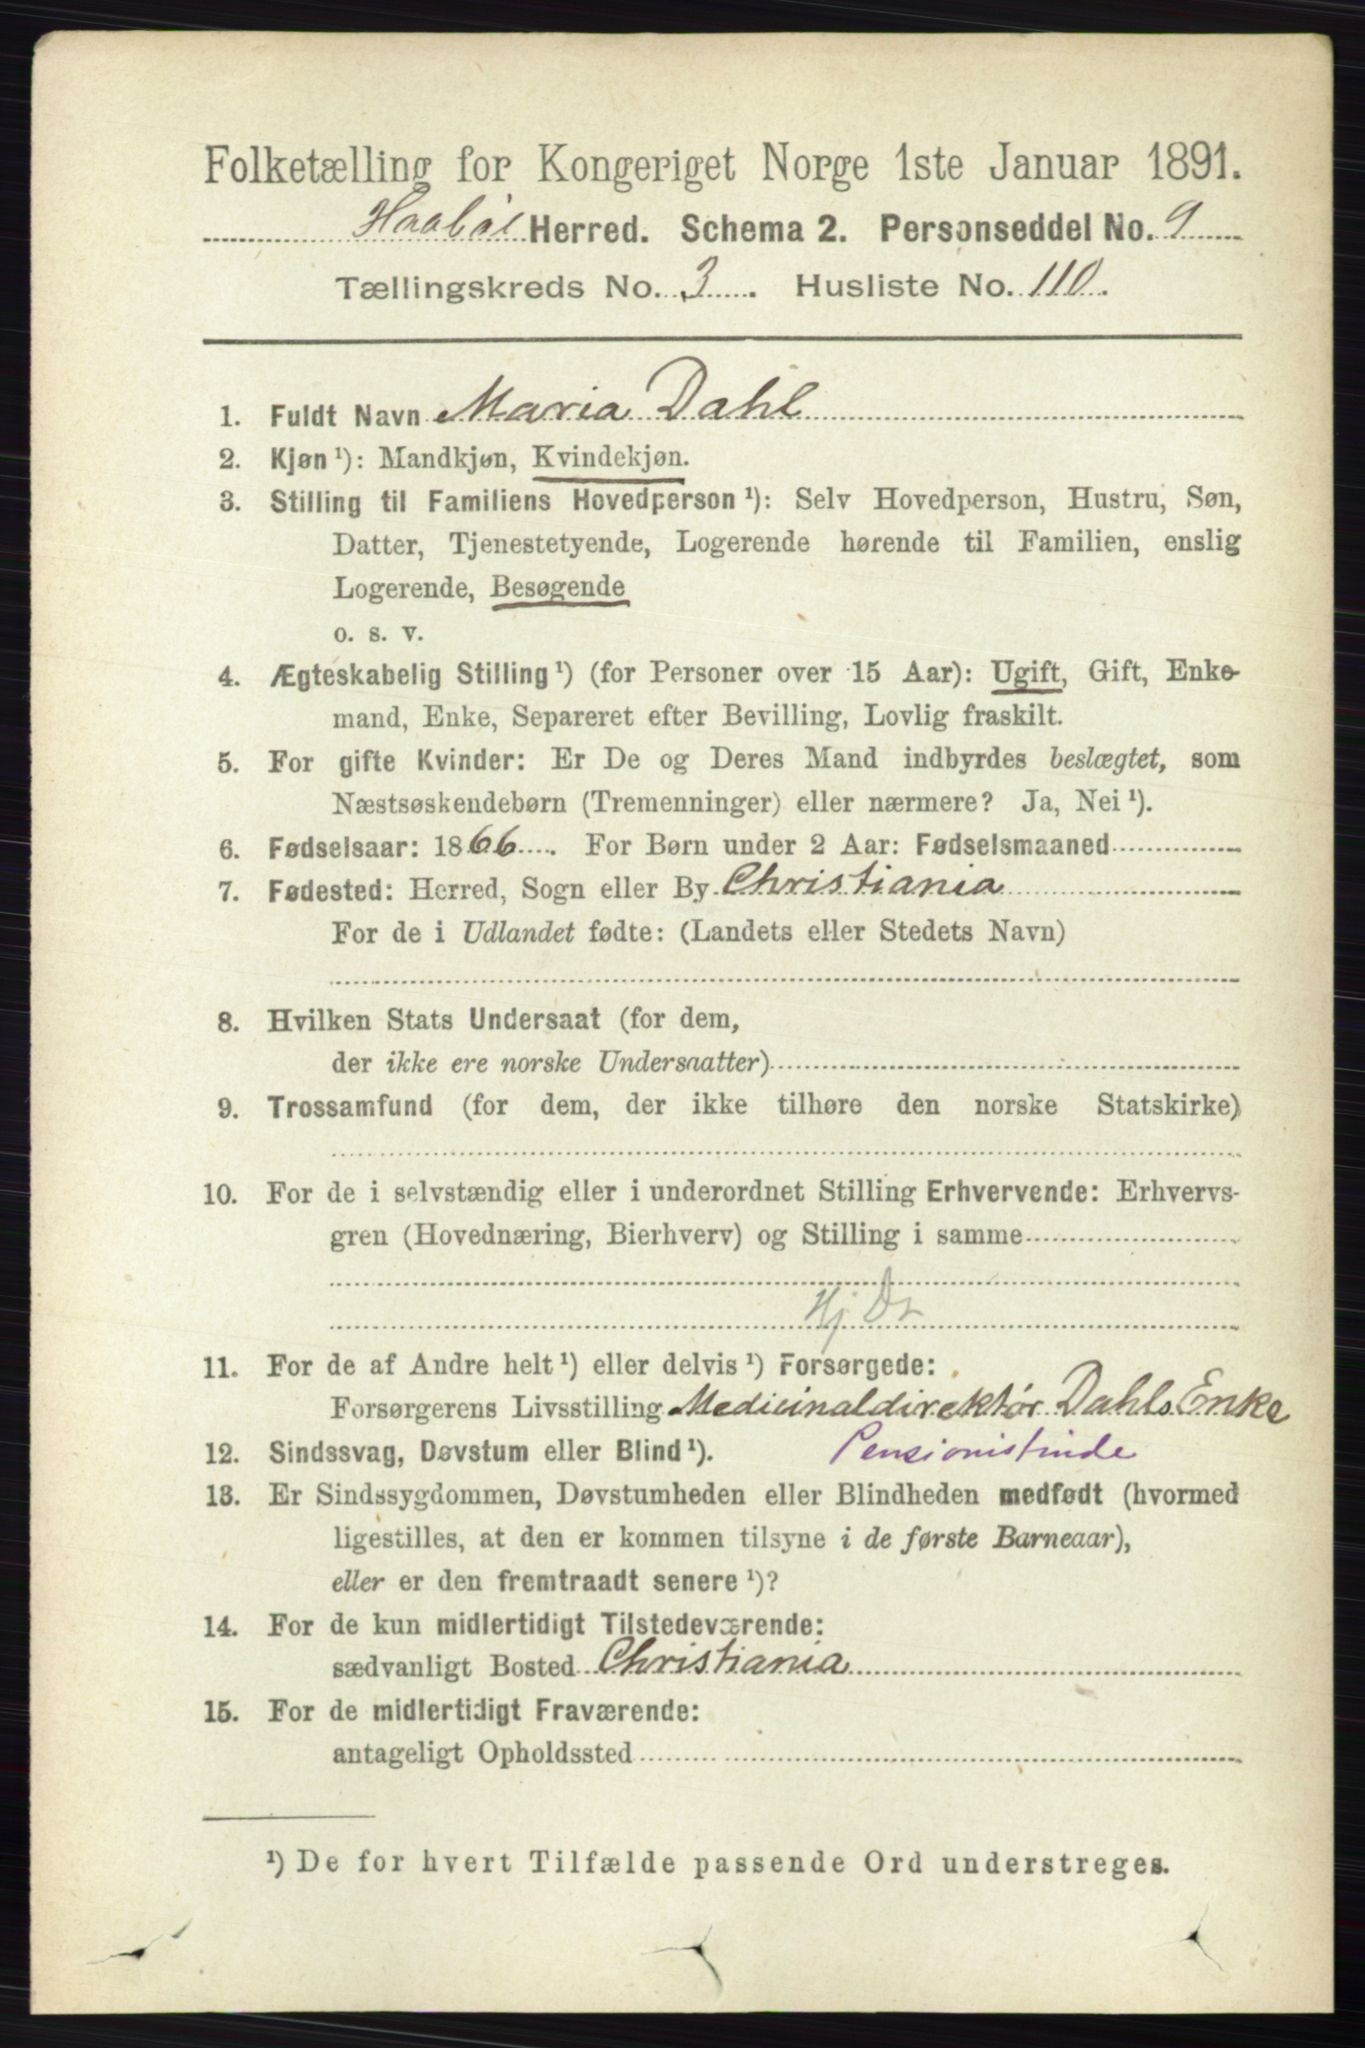 Folketælling for Kongeriget Norge 1ste Januar 1891.
Haabøl Herred. Schema 2. Personseddel No. 9
Tællingskreds No. 3. Husliste No. 110.
1. Fuldt Navn Maria Dahl
2. Kjøn ¹): Mandkjøn, Kvindekjøn.
3. Stilling til Familiens Hovedperson ¹): Selv Hovedperson, Hustru, Søn,
Datter, Tjenestetyende, Logerende hørende til Familien, enslig
Logerende, Besøgende
o. s. v.
4. Ægteskabelig Stilling ¹) (for Personer over 15 Aar): Ugift, Gift, Enke-
mand, Enke, Separeret efter Bevilling, Lovlig fraskilt.
5. For gifte Kvinder: Er De og Deres Mand indbyrdes beslægtet, som
Næstsøskendebørn (Tremenninger) eller nærmere? Ja, Nei ¹).
6. Fødselsaar: 1866. For Børn under 2 Aar: Fødselsmaaned
7. Fødested: Herred, Sogn eller By Christiania
For de i Udlandet fødte: (Landets eller Stedets Navn)
8. Hvilken Stats Undersaat (for dem,
der ikke ere norske Undersaatter)
9. Trossamfund (for dem, der ikke tilhøre den norske Statskirke)
10. For de i selvstændig eller i underordnet Stilling Erhvervende: Erhvervs-
gren (Hovednæring, Bierhverv) og Stilling i samme
Hj Dr
11. For de af Andre helt ¹) eller delvis ¹) Forsørgede:
Forsørgerens Livsstilling Medicinaldirektør Dahls Enke
12. Sindssvag, Døvstum eller Blind ¹). Pensionistinde
13. Er Sindssygdommen, Døvstumheden eller Blindheden medfødt (hvormed
ligestilles, at den er kommen tilsyne i de første Barneaar),
eller er den fremtraadt senere ¹)?
14. For de kun midlertidigt Tilstedeværende:
sædvanligt Bosted Christiania
15. For de midlertidigt Fraværende:
antageligt Opholdssted
¹) De for hvert Tilfælde passende Ord understreges.